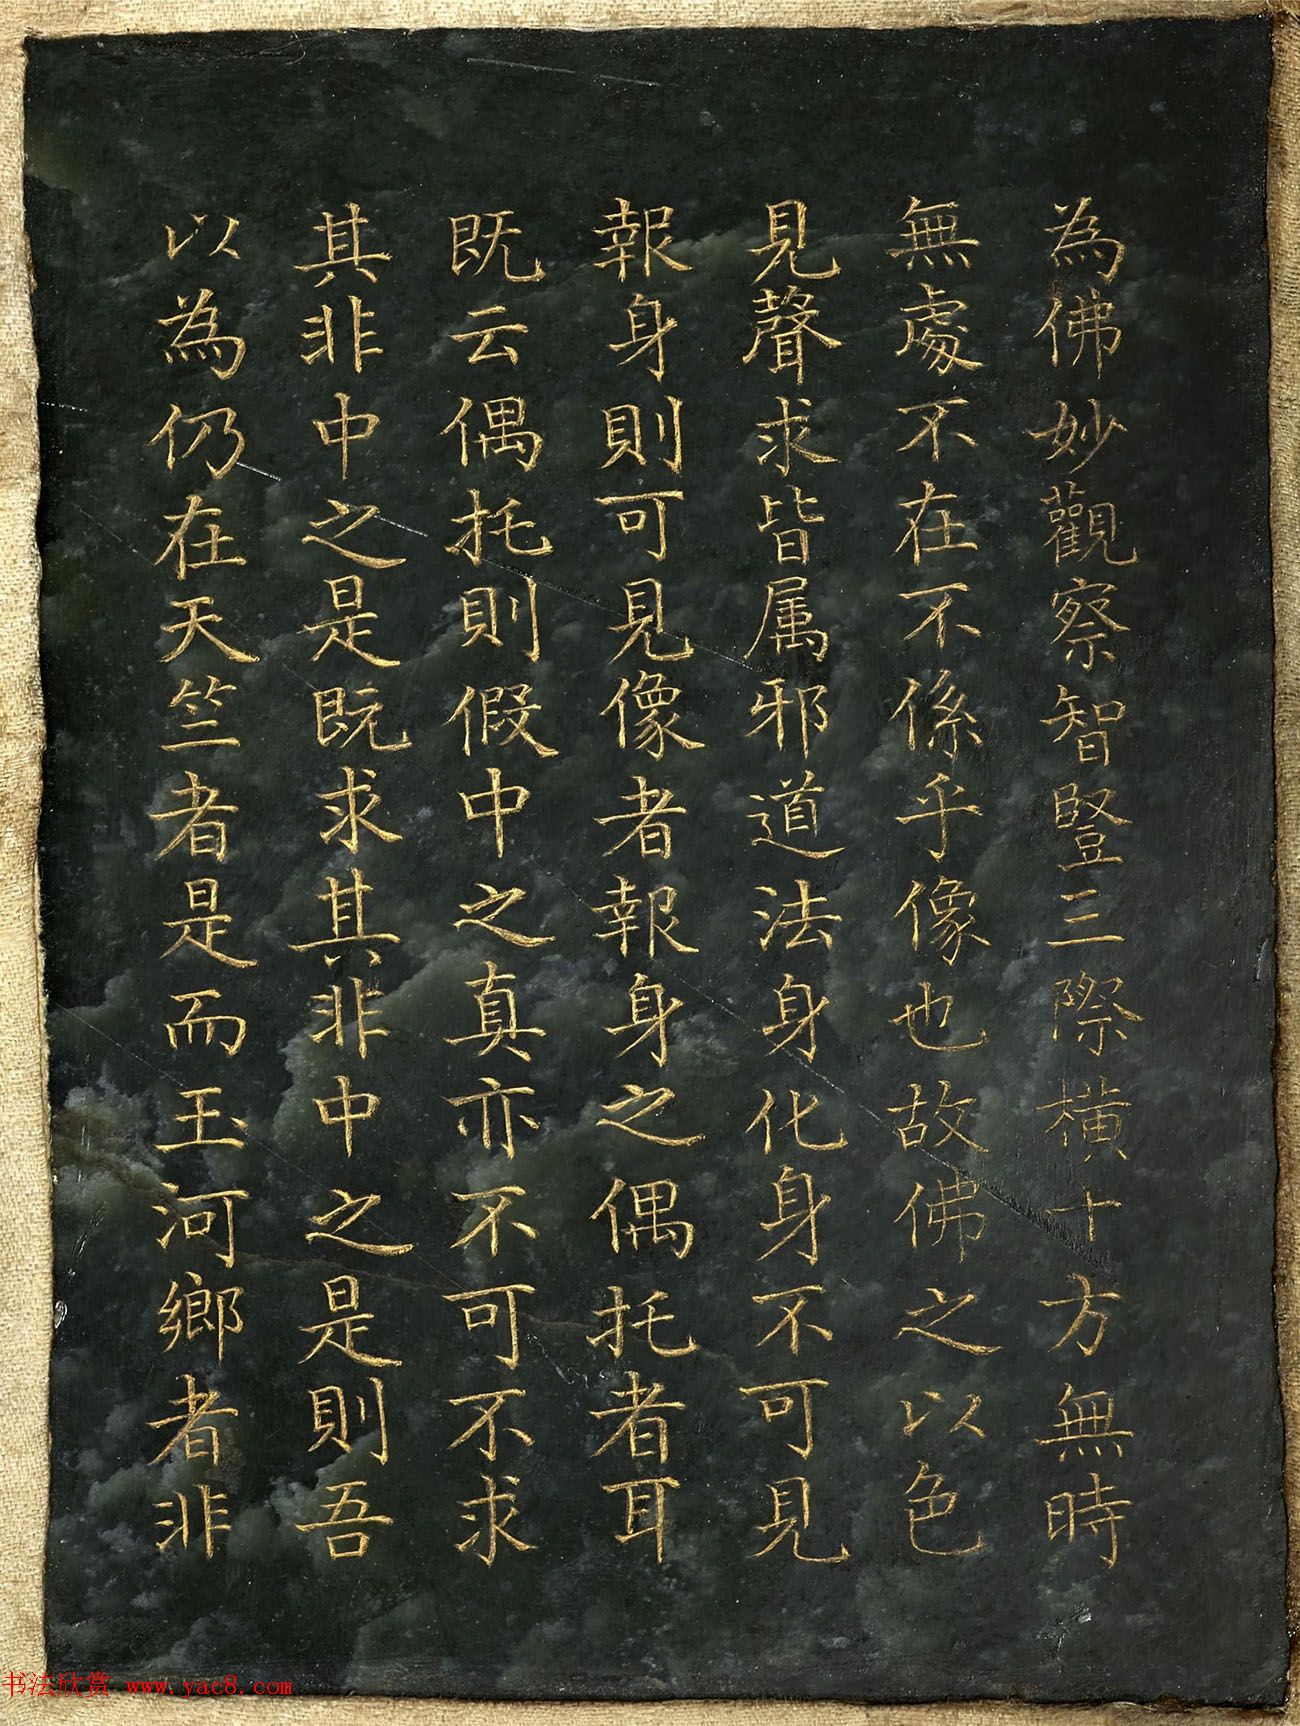 為佛妙觀察智豎三際橫十方無時
無處不在不係乎像也故佛之以色
見聲求皆属邪道法身化身不可見
報身則可見像者報身之偶托者耳
既云偶托則假中之真亦不可不求
其非中之是既求其非中之是則吾
以為仍在天竺者是而玉河鄉者非
书法欣赏 www.yac8.com